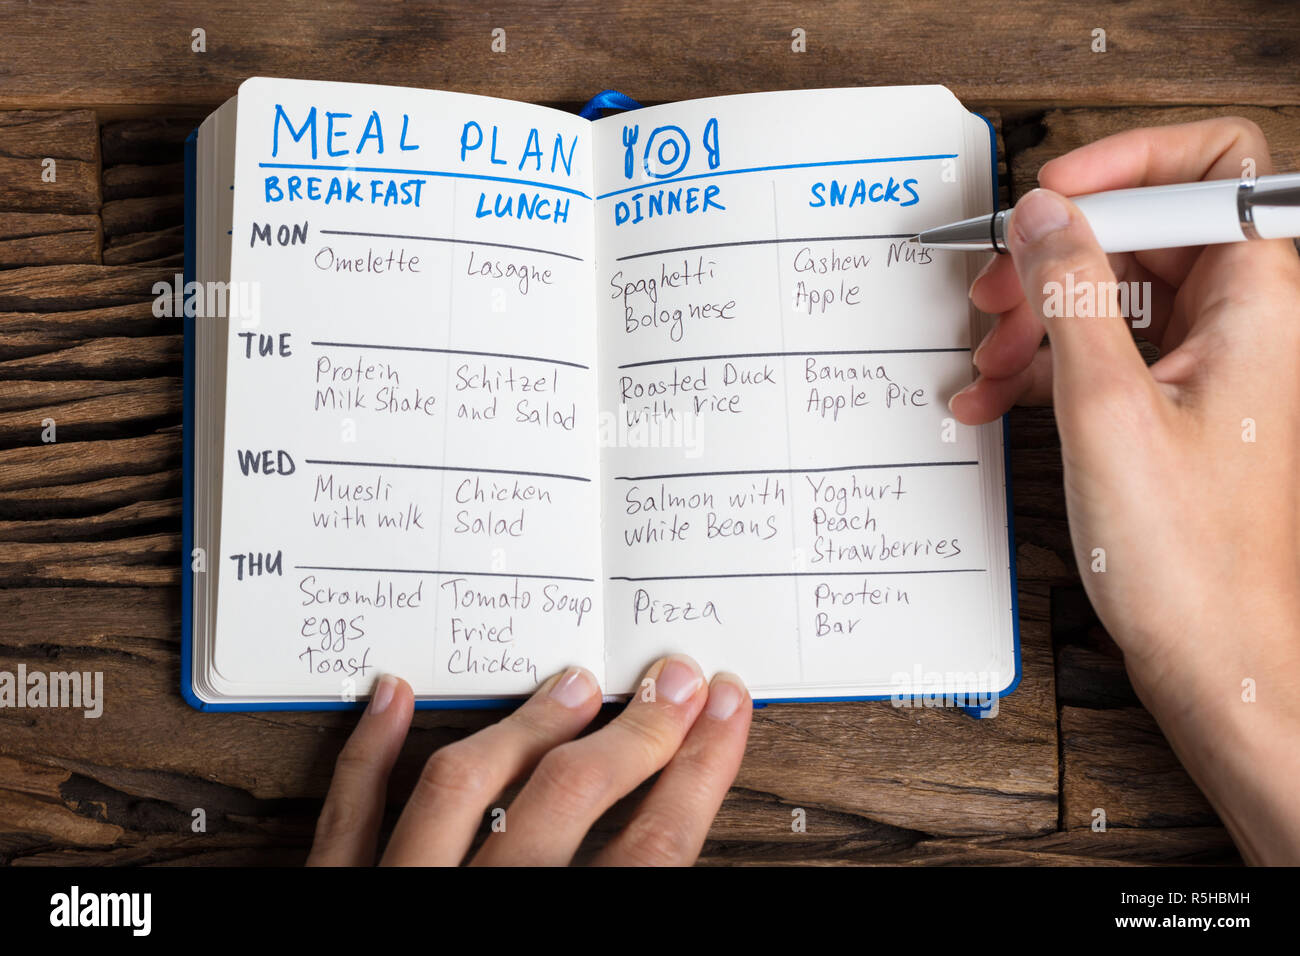 MEAL PLAN
BREAKFAST LUNCH DINNER SNACKS
MON
Omelette
Lasagne
Spaghetti
Bolognese
Cashew Nuts
Apple
TUE
Protein
Milk Shake
Schitzel
and Salad
Roasted Duck
with rice
Banana
Apple Pie
WED
Muesli
with milk
Chicken
Salad
Salmon with
white Beans
Yoghurt
Peach
Strawberries
THU
Scrambled
eggs
Toast
Tomato Soup
Fried
Chicken
Pizza
Protein
Bar
alamy
Image ID: R5HBMH
www.alamy.com